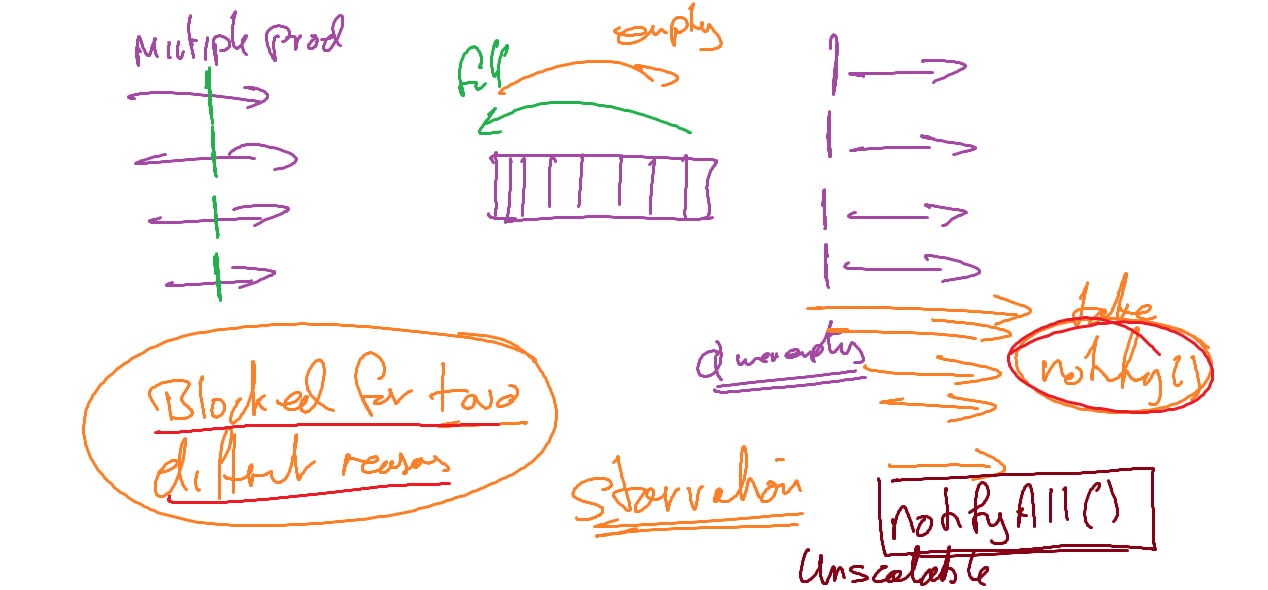 Multiple Prod
empty
full
take
notify()
Blocked for two
different reasons
Starvation
notifyAll()
Unscalable